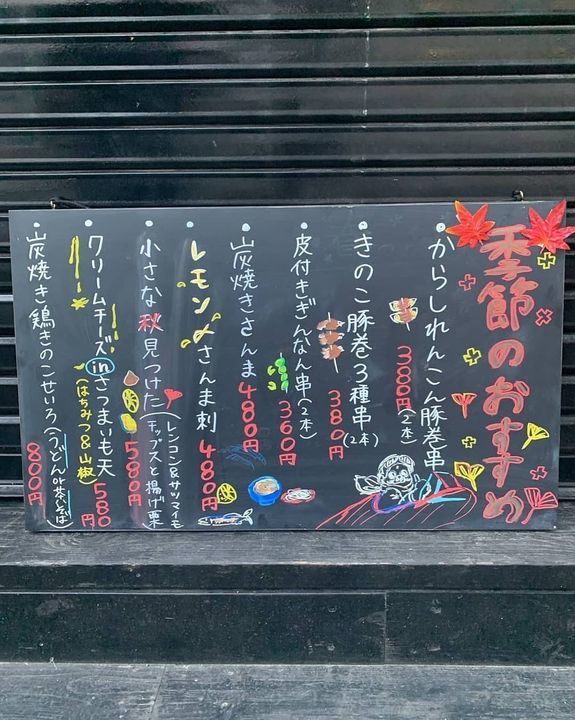 季節のおすすめ
・からしれんこん豚巻串
380円(2本)
・きのこ豚巻3種串
380円(2本)
・皮付きぎんなん串(2本)
360円
・炭焼きさんま 480円
・レモン〆さんま刺 480円
・小さな秋見つけた(レンコン&サツマイモ
チップスと揚げ栗)
580円
・クリームチーズinさつまいも天
(はちみつ&山椒) 580円
・炭焼き鶏きのこせいろ(うどんor茶そば)
800円